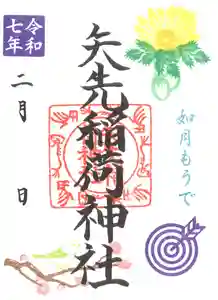 令和
七年
二月 日
矢先稲荷神社
如月もうで